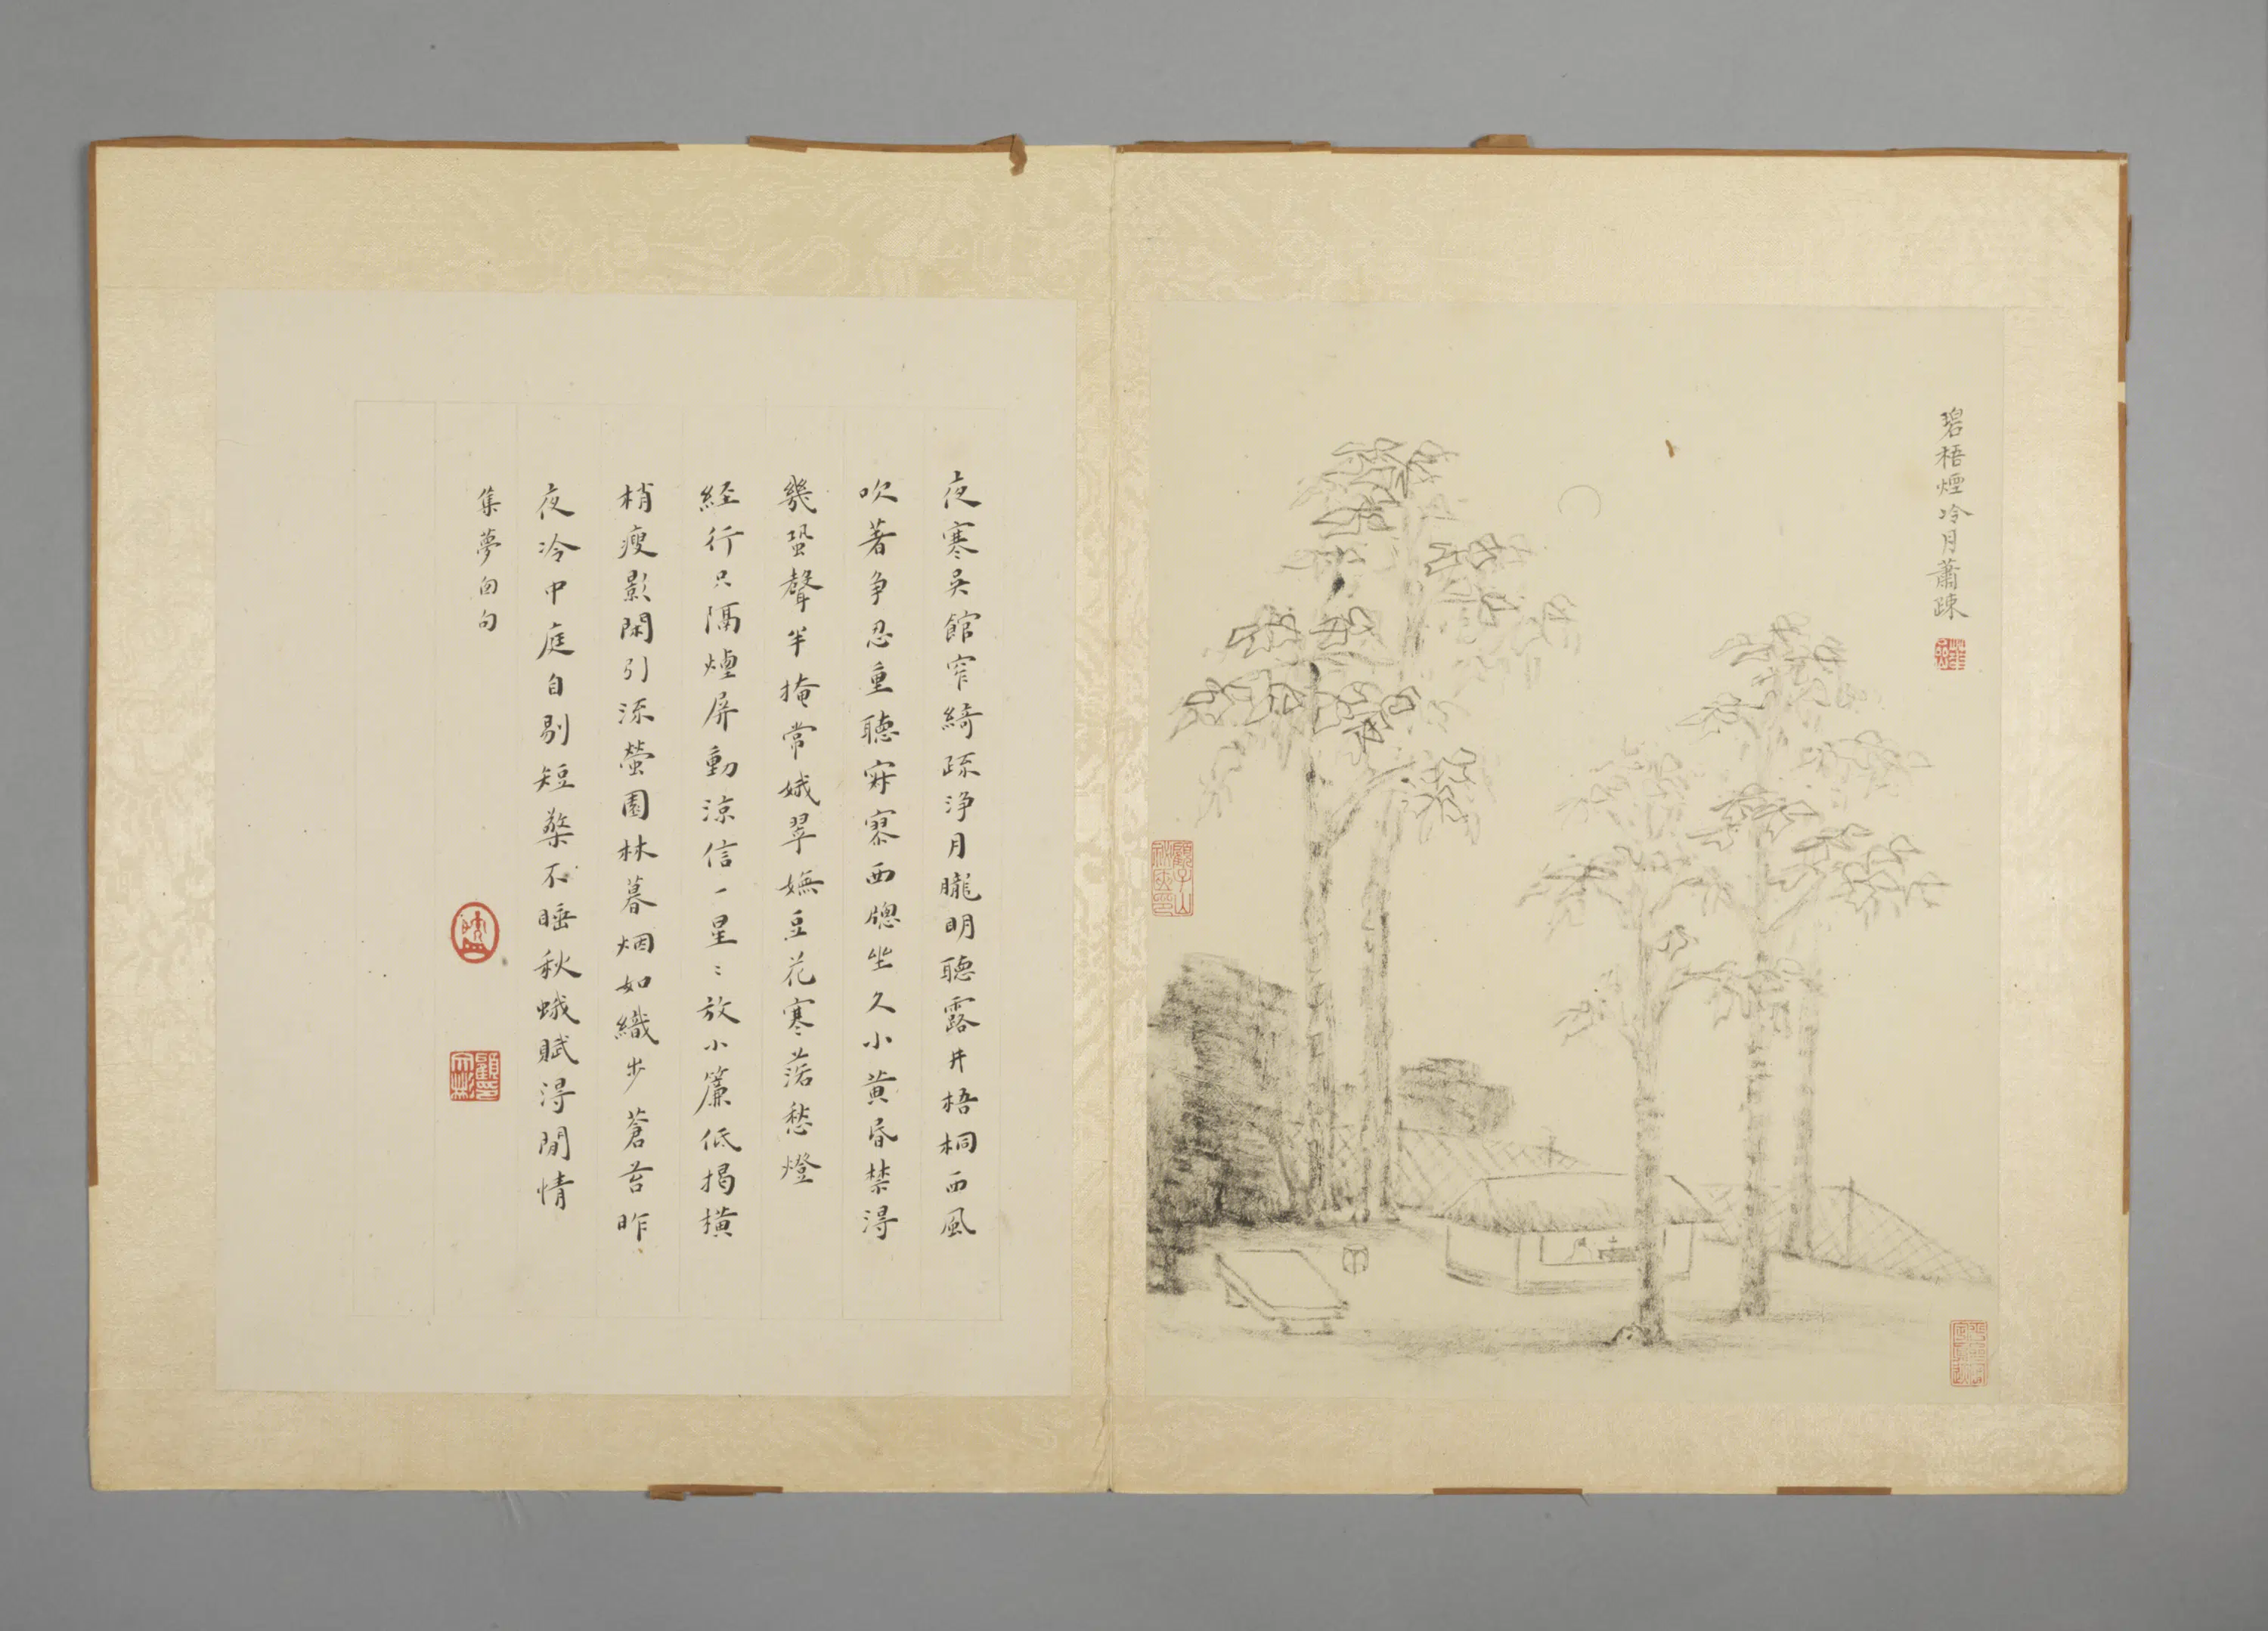 碧梧煙冷月蕭疎
夜寒吳館窄綺疏淨月朧明聽露井梧桐西風
吹著争忍重聽寂寥西窗坐久小黃昏禁得
幾蛩聲半掩常娥翠嫵豆花寒落愁燈
経行只隔煙屏動涼信一星〻放小簾低揭橫
梢瘦影閑引流螢園林暮烟如織步蒼苔昨
夜冷中庭自剔短檠不睡秋蛾賦得閒情
集夢窗句